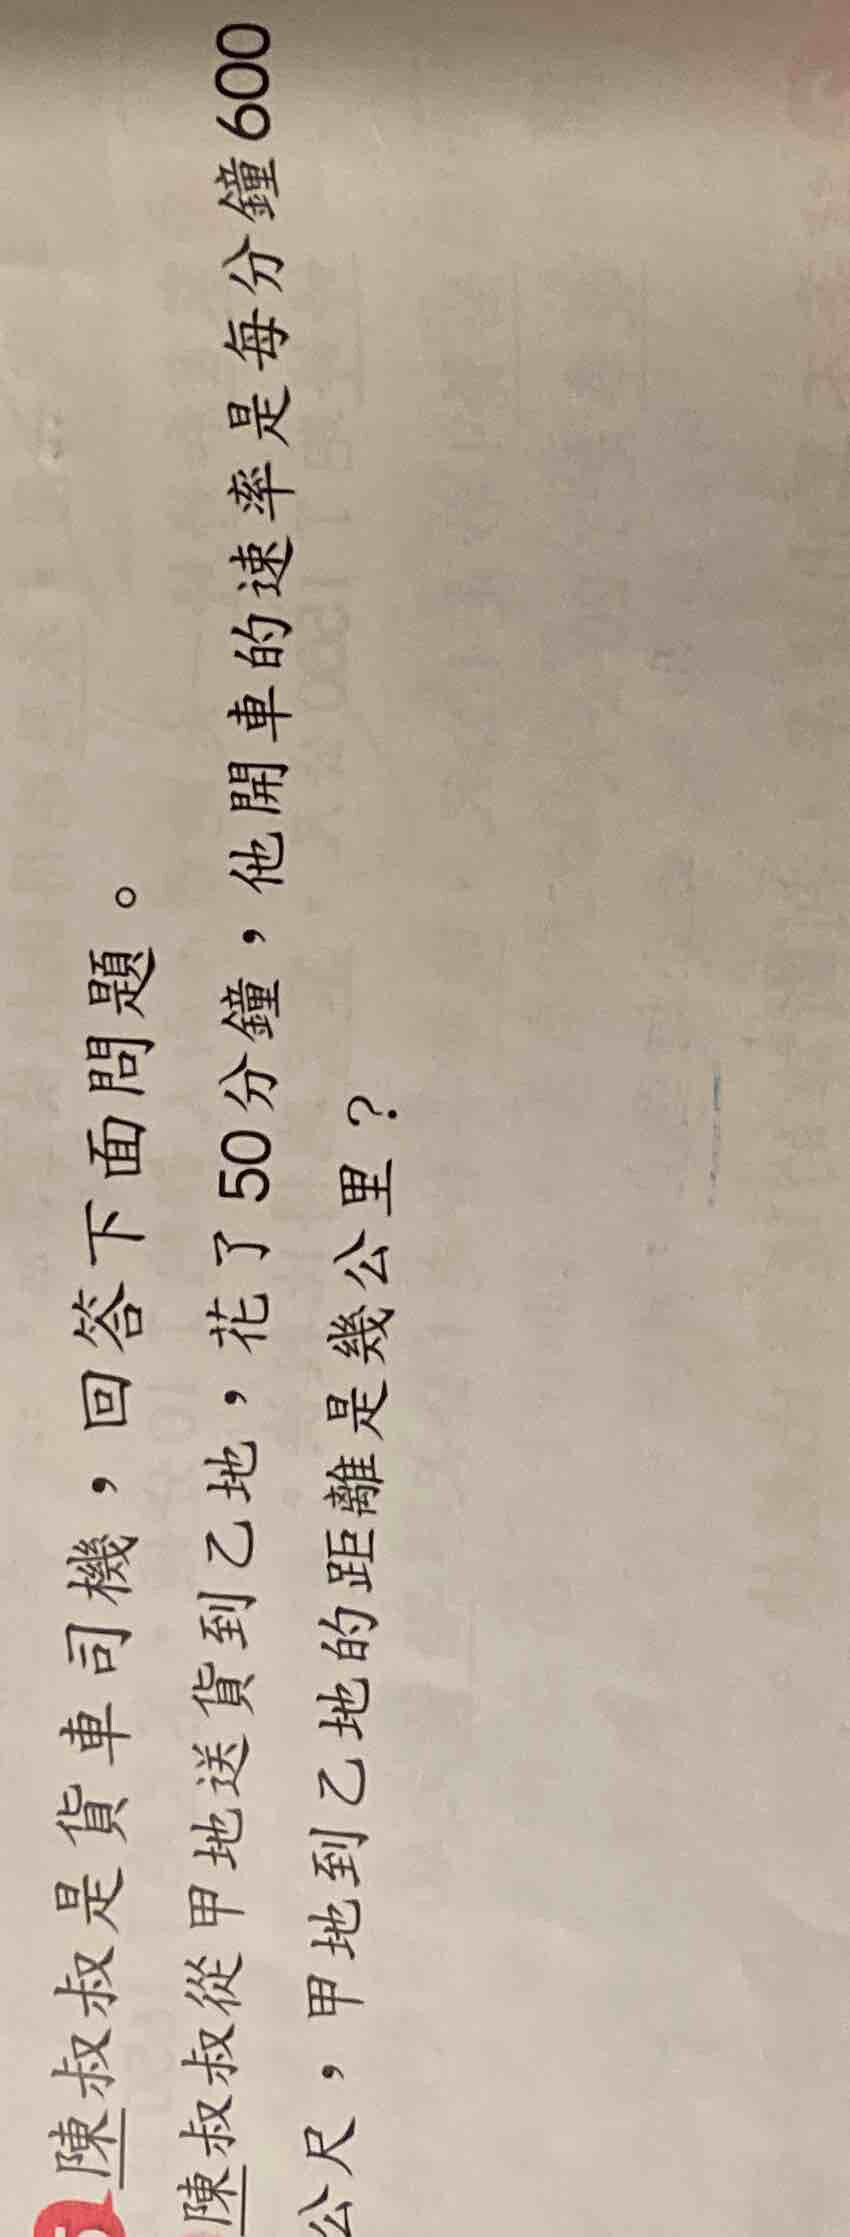 陳叔叔是貨車司機，回答下面問題。
陳叔叔從甲地送貨到乙地，花了50分鐘，他開車的速率是每分鐘600
公尺，甲地到乙地的距離是幾公里？